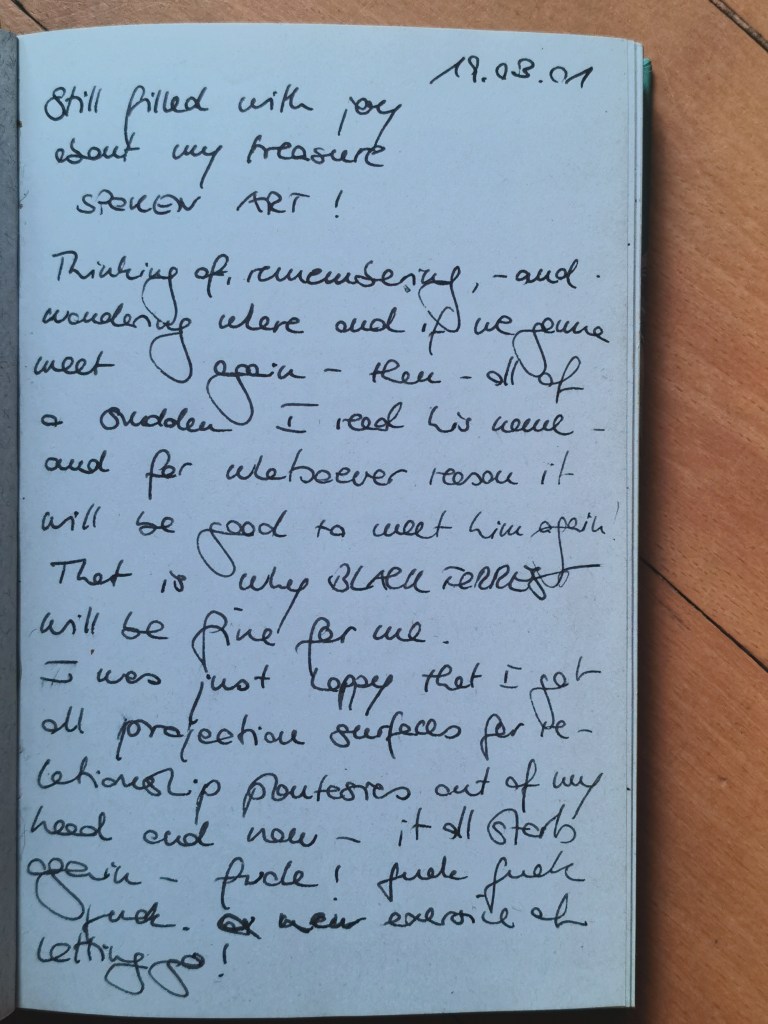 19.03.01
Still filled with joy
about my treasure
SPOKEN ART !
Thinking of, remembering, - and
wondering where and if we gonna
meet again - then - all of
a sudden I read his name -
and for whatsoever reason it
will be good to meet him again!
That is why BLACK FERREST
will be fine for me.
I was just happy that I got
all projection surfaces for re-
lationship phantasies out of my
head and now - it all starts
again - fuck! fuck fuck
fuck. new exercise of
letting go!